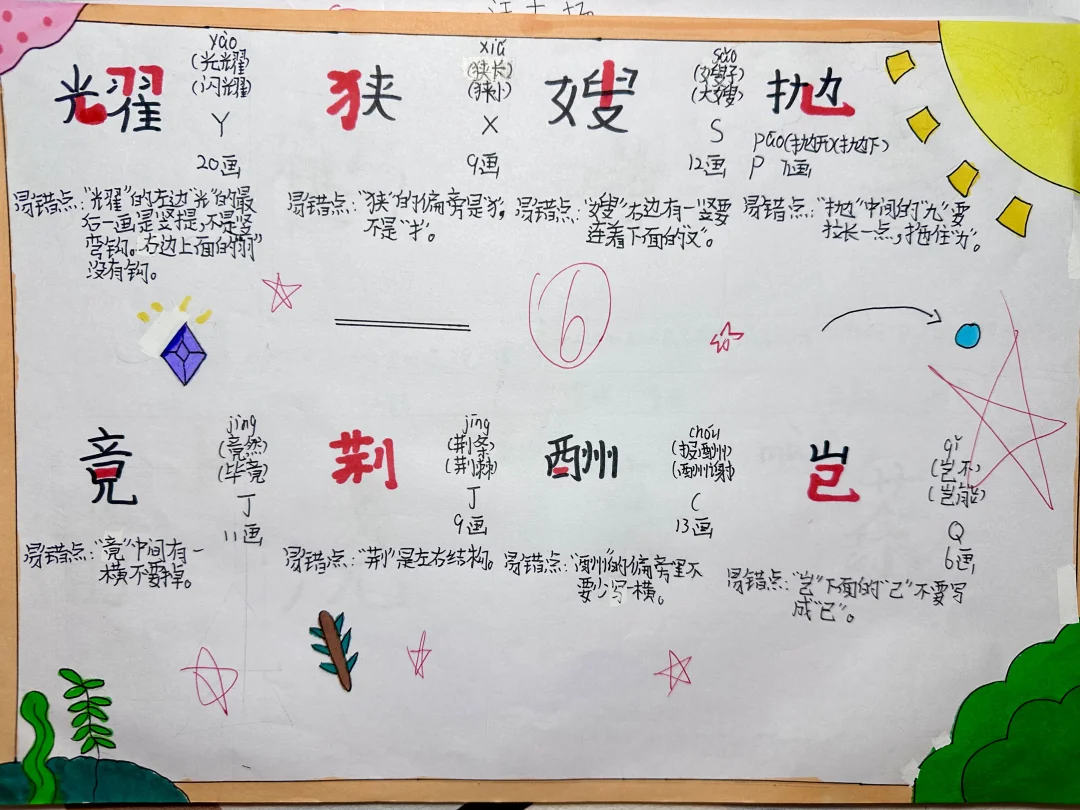 耀
yào
(光耀)
(闪耀)
Y
20画
易错点:"光耀"的左边"光"的最
后一画是竖提,不是竖
弯钩。右边上面的"羽"
没有钩。
狭
xiá
(狭长)
(狭小)
X
9画
易错点:"狭"的偏旁是"犭",
不是"扌"。
嫂
sǎo
(嫂子)
(大嫂)
S
12画
易错点:"嫂"右边有一竖要
连着下面的"又"。
抛
pāo(抛开)(抛下)
P 7画
易错点:"抛"中间的"九"要
拉长一点,拖住"力"。
6
竟
jìng
(竟然)
(毕竟)
J
11画
易错点:"竟"中间有一
横不要掉。
荆
jīng
(荆条)
(荆棘)
J
9画
易错点:"荆"是左右结构。
酬
chóu
(报酬)
(酬谢)
C
13画
易错点:"酬"的偏旁里不
要少写一横。
岂
qǐ
(岂不)
(岂能)
Q
6画
易错点:"岂"下面的"己"不要写
成"已"。